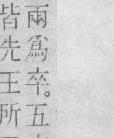 兩爲卒。五
皆先王所